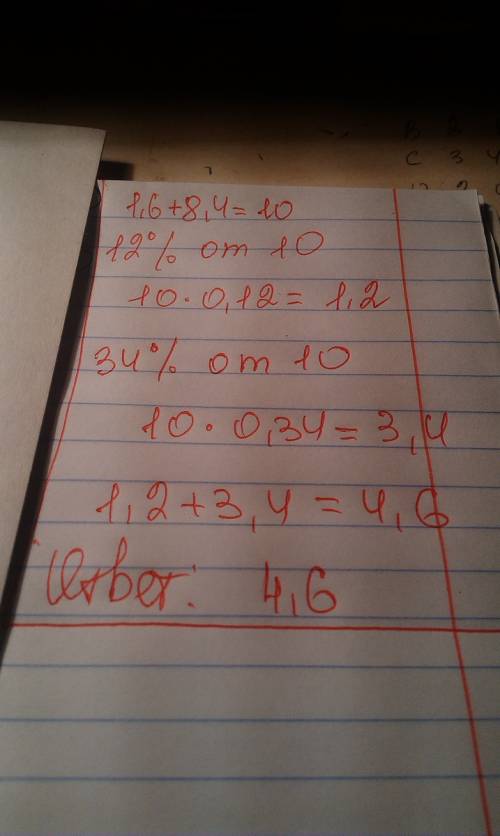 1,6+8,4=10
12% от 10
10·0,12=1,2
34% от 10
10·0,34=3,4
1,2+3,4=4,6
Ответ: 4,6